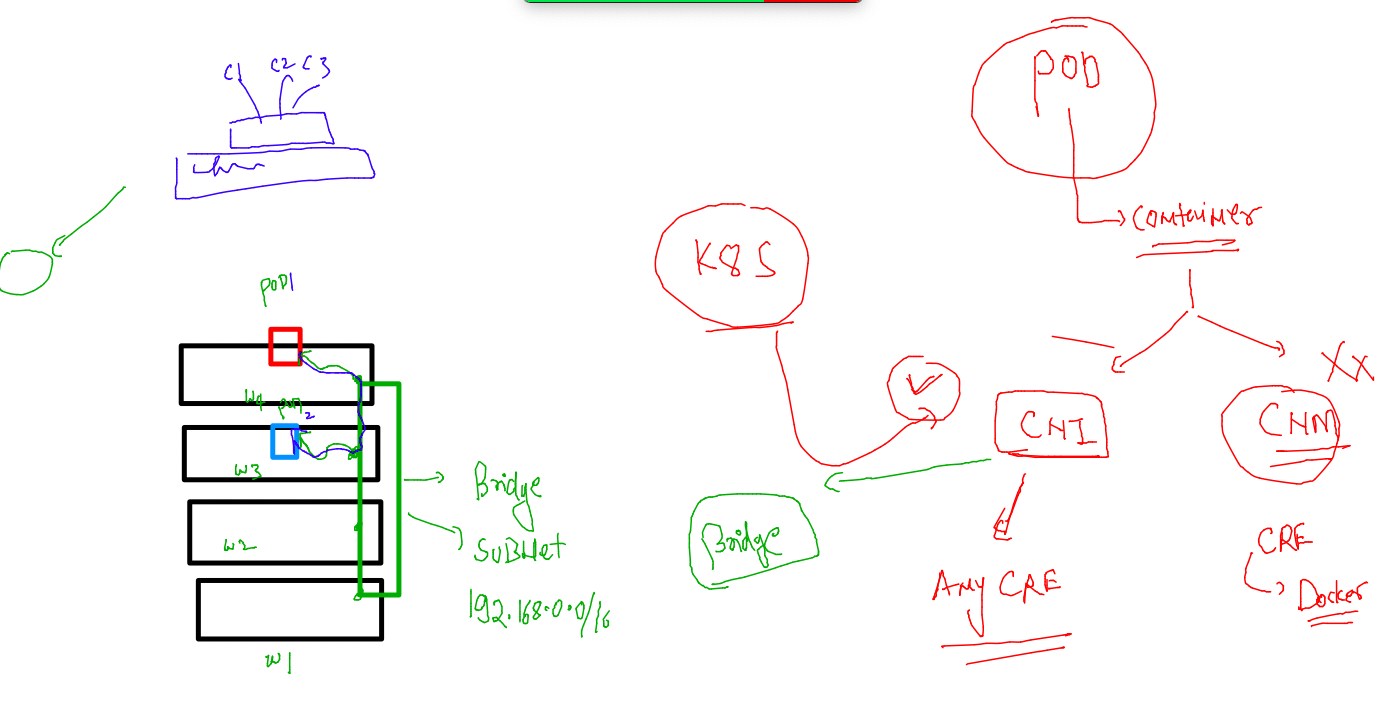 C1 C2 C3
POD1
W4
POD2
W3
W2
W1
Bridge
SUBNet
192.168.0.0/16
POD
Container
K8S
CNI
CNM
XX
Bridge
Any CRE
CRE
Docker